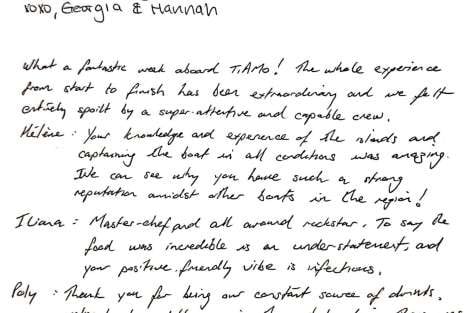 xoxo, Georgia & Hannah
What a fantastic week aboard TiAMO! The whole experience
from start to finish has been extraordinary and we felt
entirely spoilt by a super-attentive and capable crew.
Hélène : Your knowledge and experience of the islands and
captaining the boat in all conditions was amazing.
We can see why you have such a strong
reputation amidst other boats in the region!
Iliana : Master-chef and all around rockstar. To say the
food was incredible is an under-statement, and
your positive, friendly vibe is infectious.
Poly : Thank you for being our constant source of drinks,